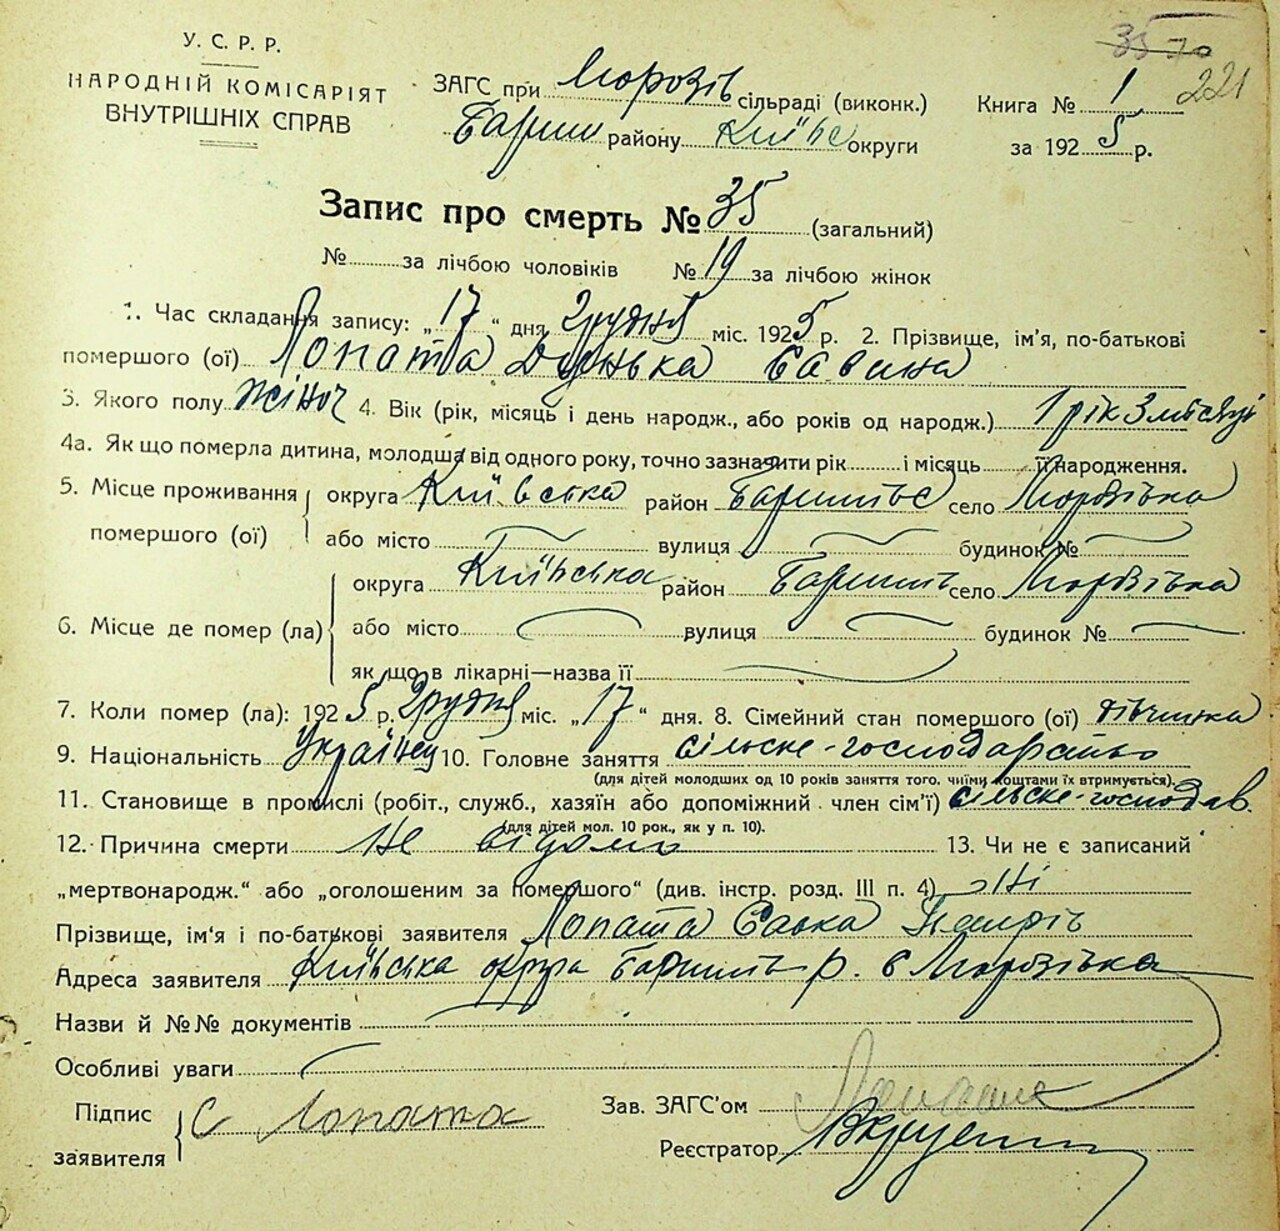 У. С. Р. Р.
НАРОДНІЙ КОМІСАРІЯТ
ВНУТРІШНІХ СПРАВ
35 70
221
ЗАГС при Морозів сільраді (виконк.)
Бариш району Київс округи
Книга № 1
за 1925 р.
Запис про смерть № 35 (загальний)
№ за лічбою чоловіків № 19 за лічбою жінок
1. Час складання запису: „17“ дня Грудня міс. 1925 р. 2. Прізвище, ім'я, по-батькові
помершого (ої) Лопата Дунька Савина
3. Якого полу жіноч 4. Вік (рік, місяць і день народж., або років од народж.) 1 рік 3 місяці
4а. Як що померла дитина, молодша від одного року, точно зазначити рік і місяць її народження.
5. Місце проживання помершого (ої) округа Київська район Баришівс село Морозівка
або місто вулиця будинок №
6. Місце де помер (ла) округа Київська район Баришів село Морозівка
або місто вулиця будинок №
як що в лікарні—назва її
7. Коли помер (ла): 1925 р. Грудня міс. „17“ дня. 8. Сімейний стан помершого (ої) дівчинка
9. Національність Українец 10. Головне заняття сільске-господарство
(для дітей молодших од 10 років заняття того, чиїми коштами їх втримується).
11. Становище в промислі (робіт., служб., хазяїн або допоміжний член сім'ї) сільске-господав.
(для дітей мол. 10 рок., як у п. 10).
12. Причина смерти Не відомо 13. Чи не є записаний
„мертвонародж.“ або „оголошеним за помершого“ (див. інстр. розд. III п. 4) Ні
Прізвище, ім'я і по-батькові заявителя Лопата Савка
Адреса заявителя Київська округа Баришів р. с Морозівка
Назви й №№ документів
Особливі уваги
Підпис заявителя С Лопата
Зав. ЗАГС'ом
Реєстратор